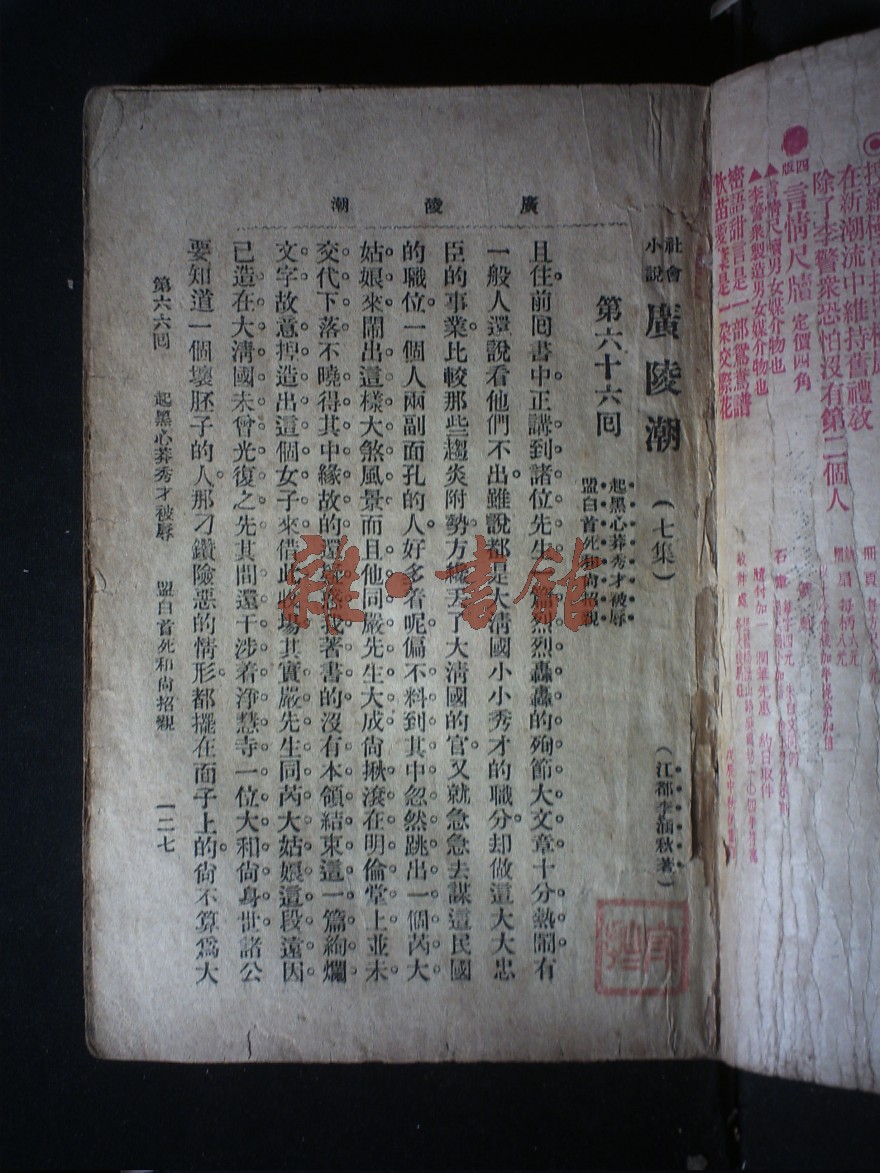 廣陵潮
社會小說 廣陵潮 (七集) (江都李涵秋著)
第六十六回 起黑心莽秀才被辱
盟白首死和尚招親
且住前回書中正講到諸位先生一篇烈烈轟轟的殉節大文章十分熱鬧有
一般人還說看他們不出雖說都是大清國小小秀才的職分却做這大大忠
臣的事業比較那些趨炎附勢方纔丟了大清國的官又就急急去謀這民國
的職位一個人兩副面孔的人好多着呢偏不料到其中忽然跳出一個芮大
姑娘來鬧出這樣大煞風景而且他同嚴先生大成尙揪滾在明倫堂上並未
交代下落不曉得其中緣故的還疑惑我著書的沒有本領結束這一篇絢爛
文字故意揑造出這個女子來借此收場其實嚴先生同芮大姑娘這段遠因
已造在大清國未曾光復之先其間還干涉着淨慧寺一位大和尙身世諸公
要知道一個壞胚子的人那刁鑽險惡的情形都擺在面子上的尙不算爲大
第六六回 起黑心莽秀才被辱 盟白首死和尙招親 一二七
在新潮流中維持舊禮敎
除了李警衆恐怕沒有第二個人
四版 言情尺牘 定價四角
▲言情尺牘男女媒介物也
▲李警衆製造男女媒介物也
密語甜言是一部鴛鴦譜
雜·書館